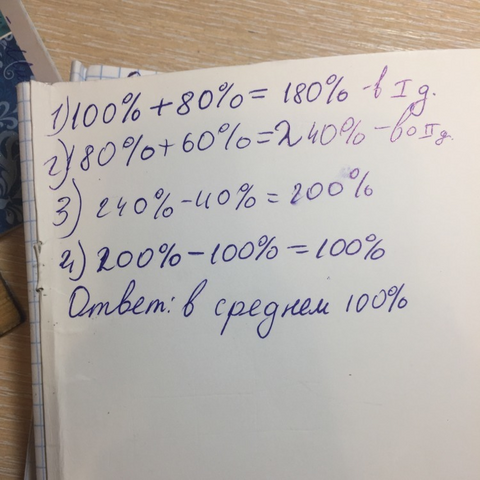 1) 100% + 80% = 180% - в I д.
2) 180% + 60% = 240% - во II д.
3) 240% - 40% = 200%
4) 200% - 100% = 100%
Ответ: в среднем 100%